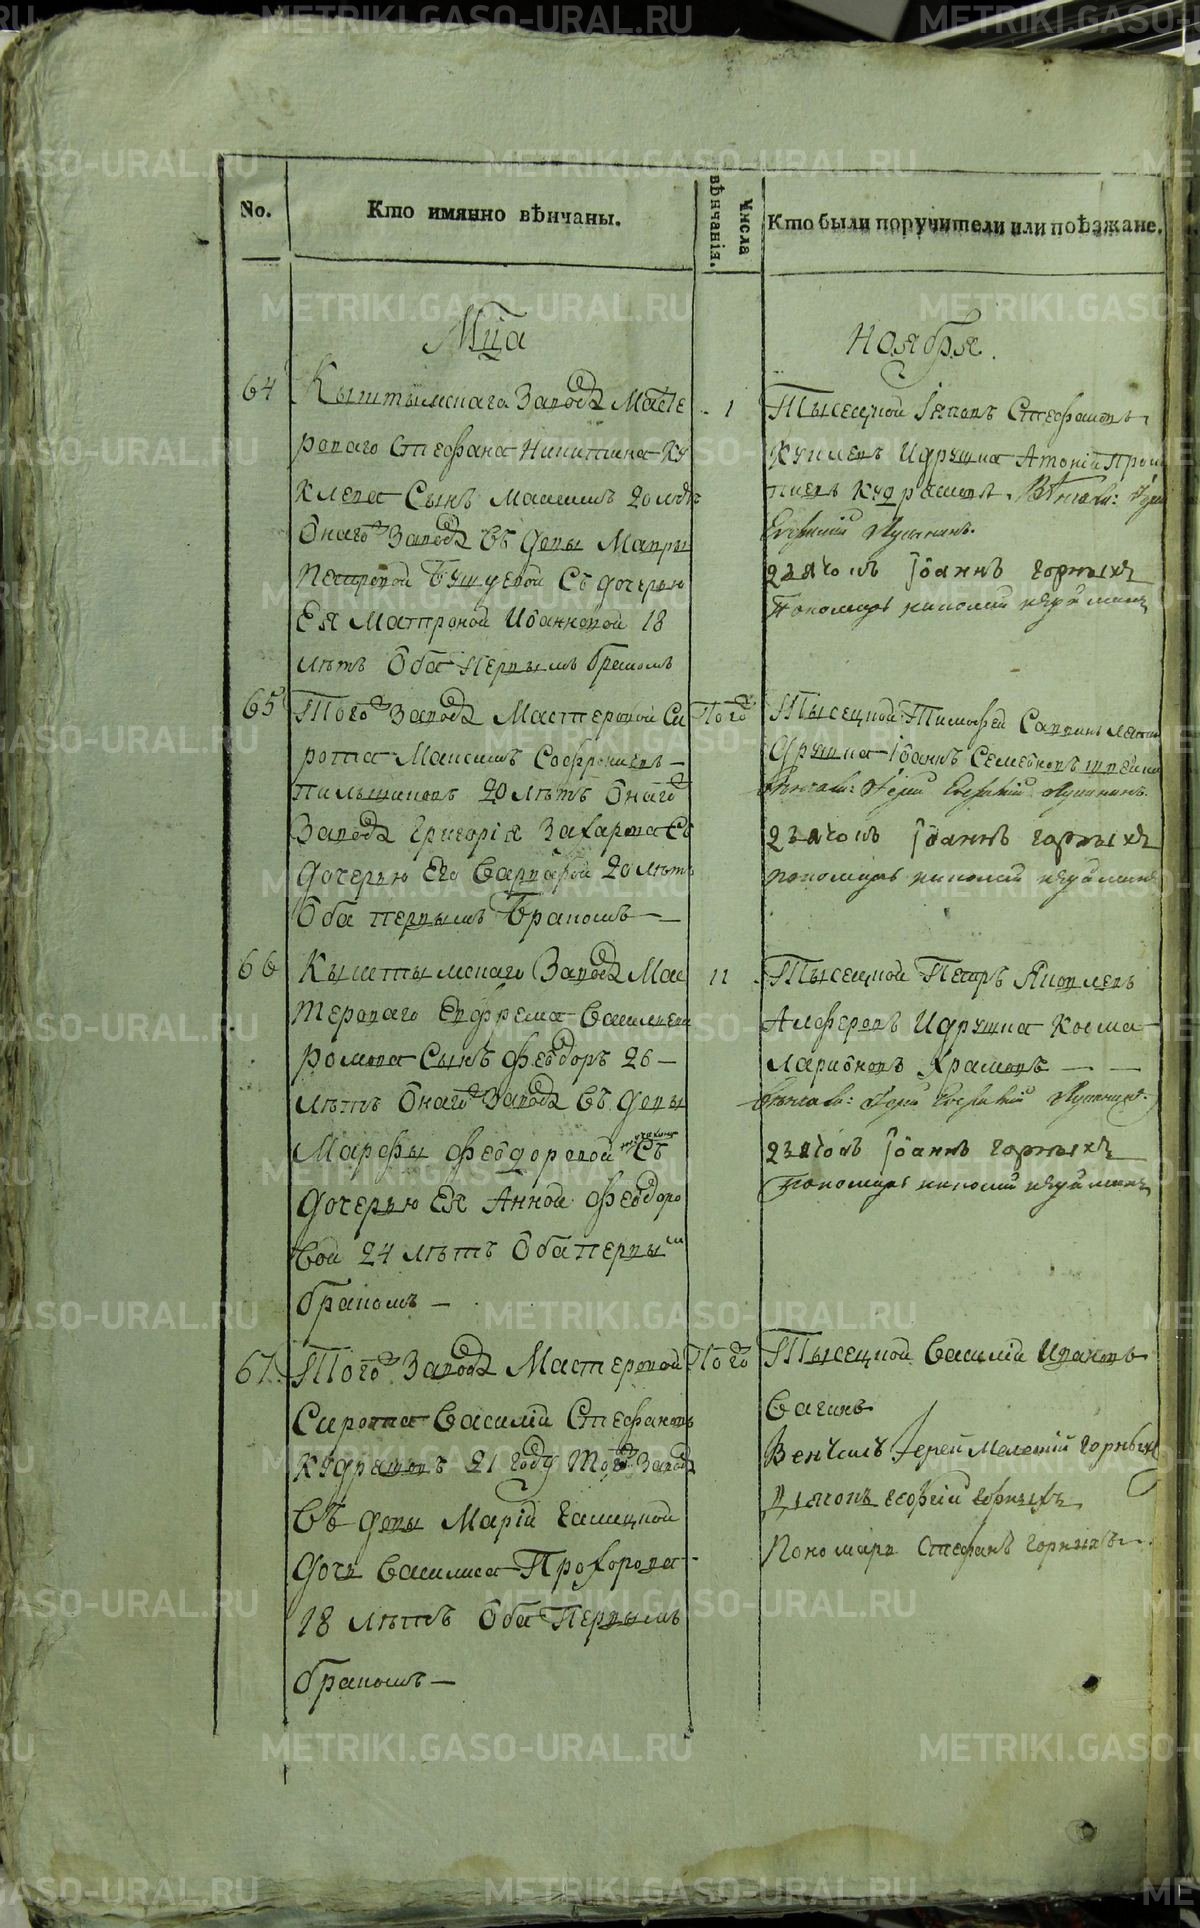 No.
Кто имянно вѣнчаны.
Числа вѣнчанія.
Кто были поручители или поѣзжане.
Мца
Ноября.
64
Кыштымскаго Завода Масте
роваго Стефана Никитина Ку
клева Сынъ Максимъ 20 лѣтъ
Онаго Завода Въ довы Мавры
Петровой Бушуевой Съ дочерью
Ея Матроной Ивановной 18
лѣтъ Оба первымъ бракомъ
1
Тысецкой Яковъ Стефановъ
Куклевъ И дружка
Вѣнчалъ: Іерей
Евфимій
Дьячокъ Іоаннъ Горныхъ
Пономарь Николай
65
Того Завода Мастеровой Си
рота Максимъ Софроновъ
Пильщиковъ 20 лѣтъ Онаго
Завода Григорія Захарова Съ
дочерью Его Варварой 20 лѣтъ
Оба первымъ Бракомъ —
Того
Тысецкой Тимофей
дружка Іоаннъ Семеновъ
Вѣнчалъ: Іерей Евфимій
Дьячокъ Іоаннъ Горныхъ
пономарь николай
66
Кыштымскаго Завода Мас
тероваго Ефрема Васильева
Ромова Сынъ Феодоръ 26 —
лѣтъ Онаго Завода Въ довы
Марфы Феодоровой Съ
дочерью Ея Анной Феодоро
вой 24 лѣтъ Оба первы м
бракомъ —
11
Тысецкой Петръ Яковлевъ
Алферовъ И дружка Косма
Ларионовъ Храмовъ — —
Вѣнчалъ: Іерей Евфимій
Дьячокъ Іоаннъ Горныхъ
Пономарь николай
67
Того Завода Мастеровой
Сирота Василій Стефановъ
Кудрявовъ 21 году Того Завода
Въ довы Маріи Галицкой
дочь Василиса Прохорова
18 лѣтъ Оба Первымъ
бракомъ —
Того
Тысецкой Василій Ивановъ
Вагинъ
Венчалъ Іерей Мелетій Горныхъ
Діаконъ Георгій Горныхъ
Пономарь Стефанъ Горныхъ
METRIKI.GASO-URAL.RU